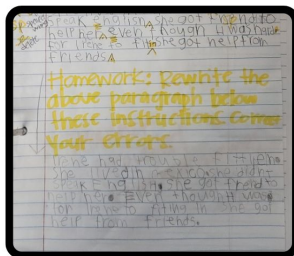 speak English. she got friend to
help her. Even though it was hard
for Irene to fit in she got help from
friends.
Homework: Rewrite the
above paragraph below
these instructions. Correct
your errors.
Irene had trouble fitting
she lived in she didnt
speak English. she got friend to
help her. Even though
for Irene to fiting in she got
help from friends.